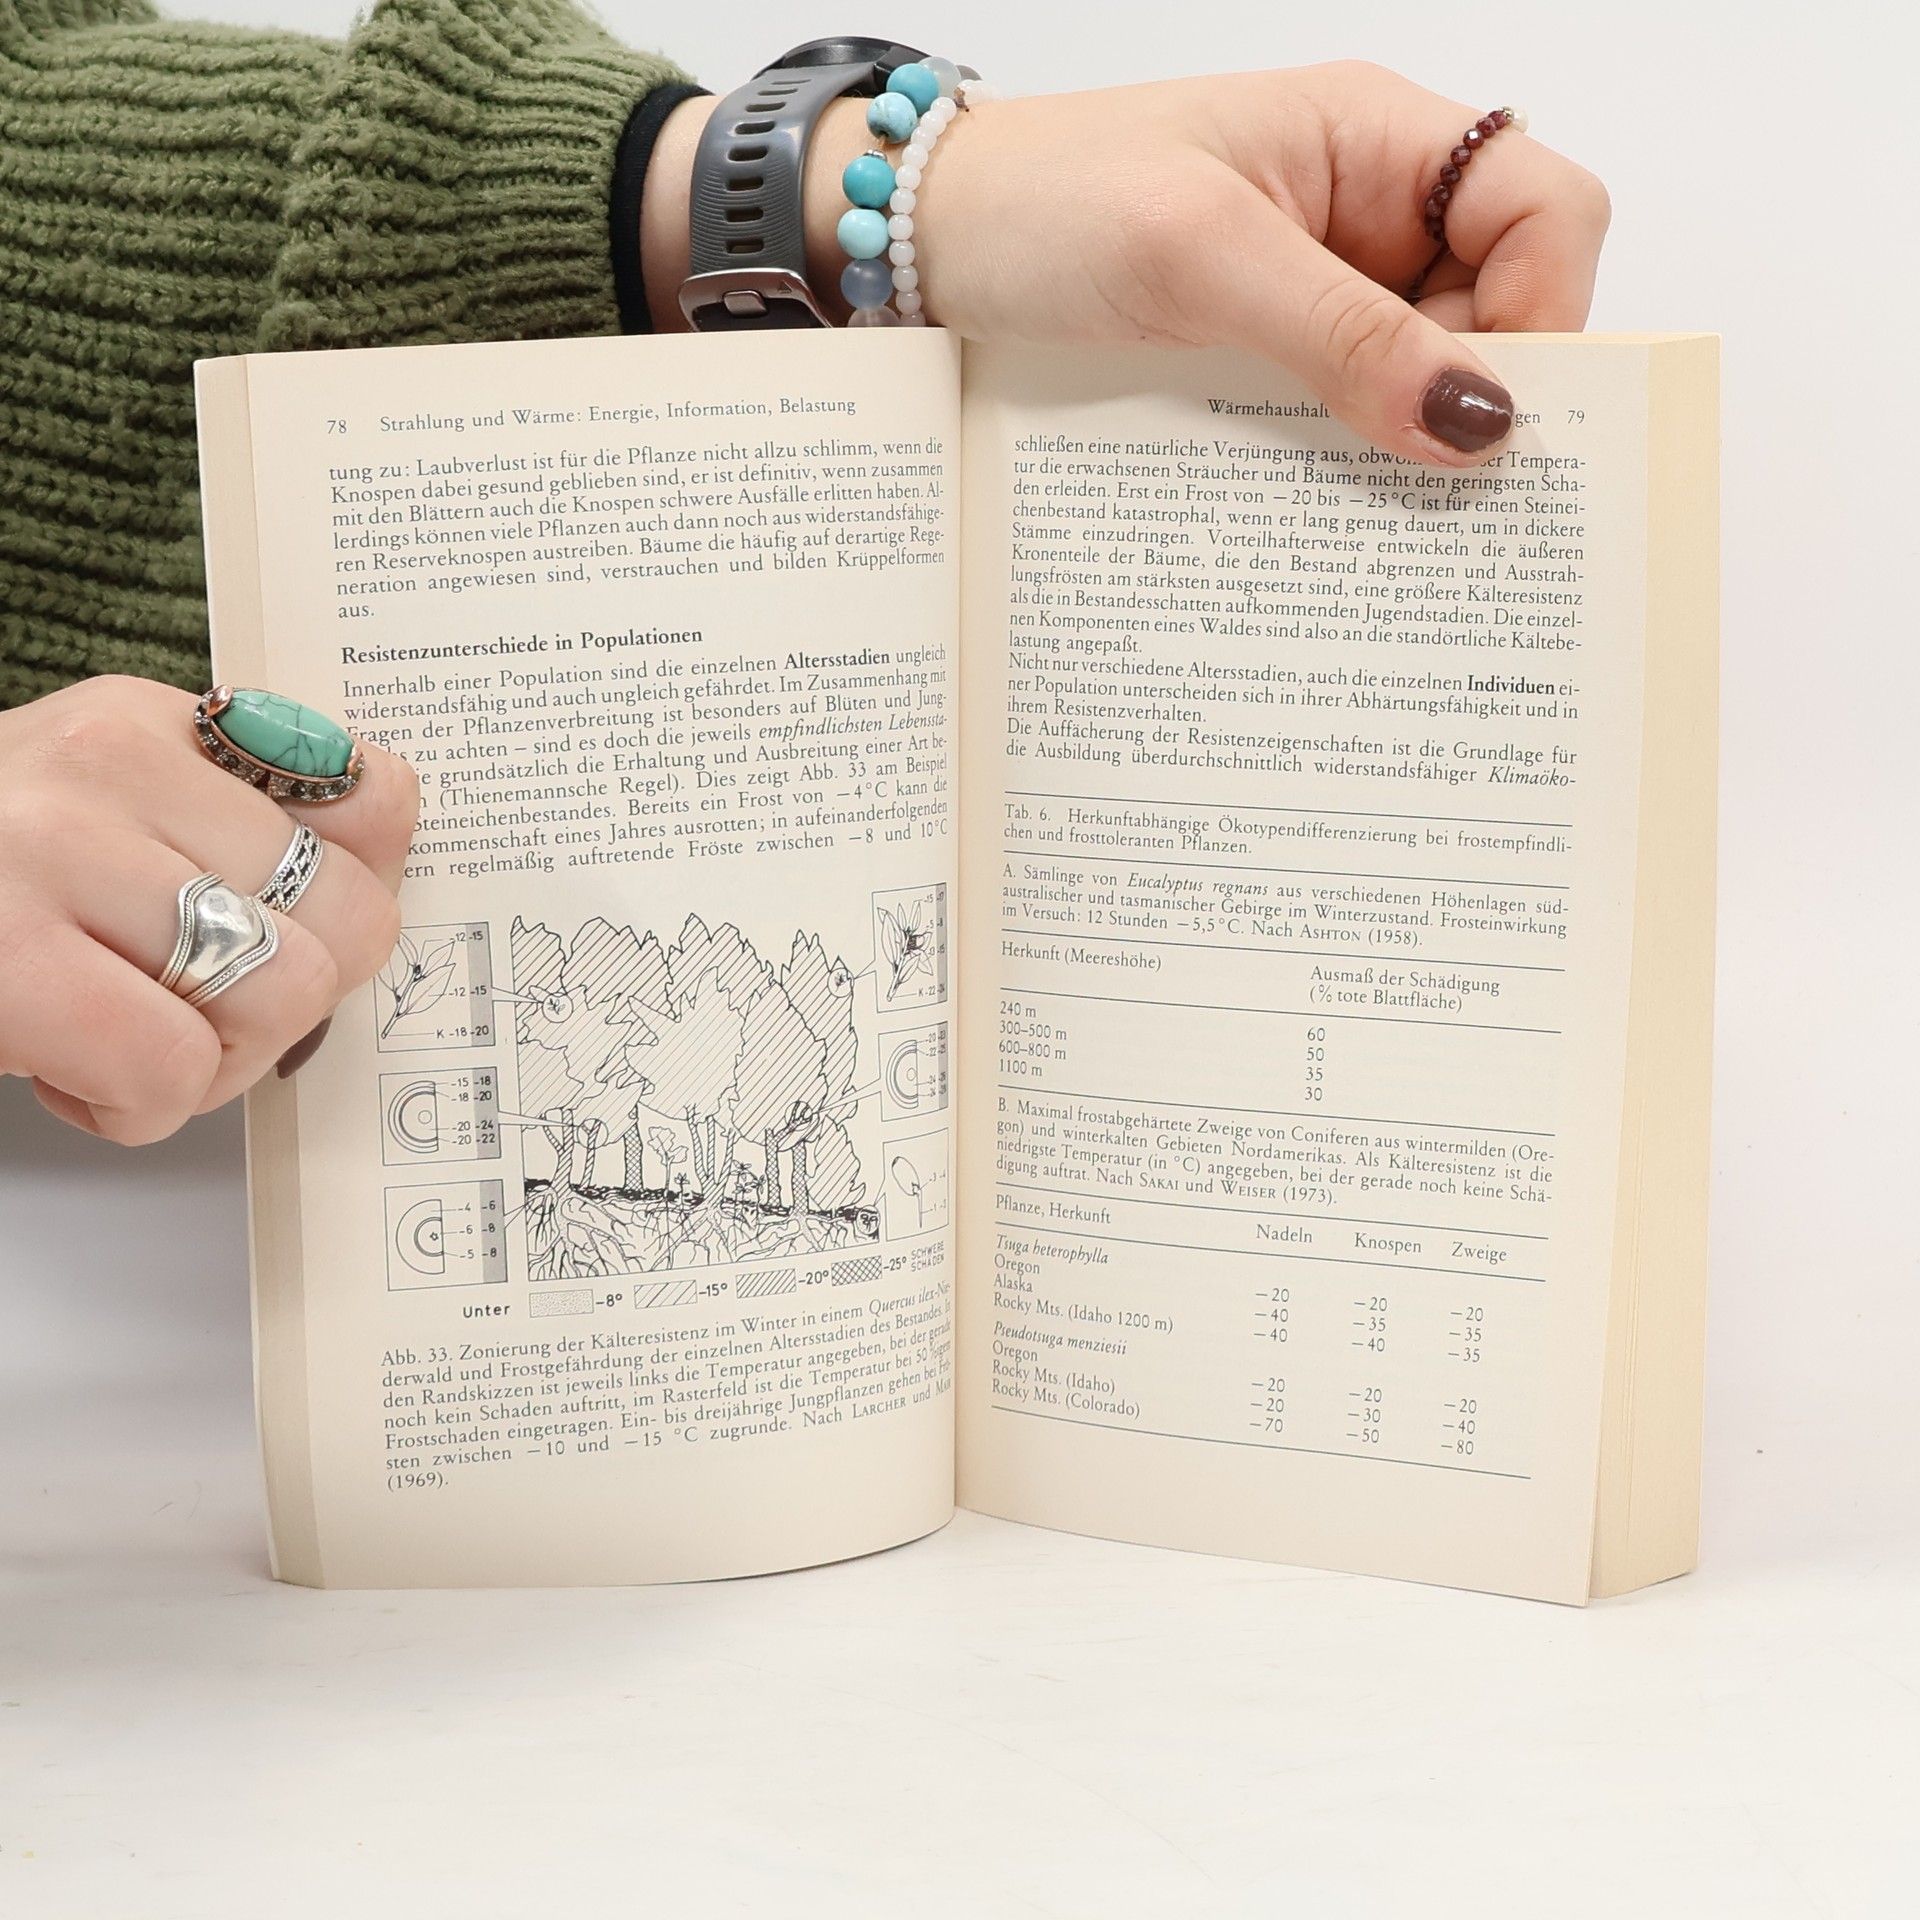 78 Strahlung und Wärme: Energie, Information, Belastung
tung zu: Laubverlust ist für die Pflanze nicht allzu schlimm, wenn die
Knospen dabei gesund geblieben sind, er ist definitiv, wenn zusammen
mit den Blättern auch die Knospen schwere Ausfälle erlitten haben. Al-
lerdings können viele Pflanzen auch dann noch aus widerstandsfähige-
ren Reserveknospen austreiben. Bäume die häufig auf derartige Rege-
neration angewiesen sind, verstrauchen und bilden Krüppelformen
aus.
Resistenzunterschiede in Populationen
Innerhalb einer Population sind die einzelnen Altersstadien ungleich
widerstandsfähig und auch ungleich gefährdet. Im Zusammenhang mit
Fragen der Pflanzenverbreitung ist besonders auf Blüten und Jung-
zu achten – sind es doch die jeweils empfindlichsten Lebenssta-
grundsätzlich die Erhaltung und Ausbreitung einer Art be-
(Thienemannsche Regel). Dies zeigt Abb. 33 am Beispiel
Steineichenbestandes. Bereits ein Frost von −4°C kann die
kommenschaft eines Jahres ausrotten; in aufeinanderfolgenden
ern regelmäßig auftretende Fröste zwischen −8 und 10°C
-12 -15
-12 -15
K -18 -20
-15 -18
-18 -20
-20 -24
-20 -22
-4 -6
-6 -8
-5 -8
Unter -8° -15° -20° -25° SCHWERE SCHÄDEN
Abb. 33. Zonierung der Kälteresistenz im Winter in einem Quercus ilex-Nie-
derwald und Frostgefährdung der einzelnen Altersstadien des Bestandes. In
den Randskizzen ist jeweils links die Temperatur angegeben, bei der gerade
noch kein Schaden auftritt, im Rasterfeld ist die Temperatur bei 50%igem
Frostschaden eingetragen. Ein- bis dreijährige Jungpflanzen gehen bei Frö-
sten zwischen −10 und −15 °C zugrunde. Nach LARCHER und MAIR
(1969).
Wärmehaushalt gen 79
schließen eine natürliche Verjüngung aus, Tempera-
tur die erwachsenen Sträucher und Bäume nicht den geringsten Scha-
den erleiden. Erst ein Frost von −20 bis −25°C ist für einen Steinei-
chenbestand katastrophal, wenn er lang genug dauert, um in dickere
Stämme einzudringen. Vorteilhafterweise entwickeln die äußeren
Kronenteile der Bäume, die den Bestand abgrenzen und Ausstrah-
lungsfrösten am stärksten ausgesetzt sind, eine größere Kälteresistenz
als die in Bestandesschatten aufkommenden Jugendstadien. Die einzel-
nen Komponenten eines Waldes sind also an die standörtliche Kältebe-
lastung angepaßt.
Nicht nur verschiedene Altersstadien, auch die einzelnen Individuen ei-
ner Population unterscheiden sich in ihrer Abhärtungsfähigkeit und in
ihrem Resistenzverhalten.
Die Auffächerung der Resistenzeigenschaften ist die Grundlage für
die Ausbildung überdurchschnittlich widerstandsfähiger Klimaöko-
Tab. 6. Herkunftabhängige Ökotypendifferenzierung bei frostempfindli-
chen und frosttoleranten Pflanzen.
A. Sämlinge von Eucalyptus regnans aus verschiedenen Höhenlagen süd-
australischer und tasmanischer Gebirge im Winterzustand. Frosteinwirkung
im Versuch: 12 Stunden −5,5°C. Nach ASHTON (1958).
Herkunft (Meereshöhe) Ausmaß der Schädigung
(% tote Blattfläche)
240 m 60
300–500 m 50
600–800 m 35
1100 m 30
B. Maximal frostabgehärtete Zweige von Coniferen aus wintermilden (Ore-
gon) und winterkalten Gebieten Nordamerikas. Als Kälteresistenz ist die
niedrigste Temperatur (in °C) angegeben, bei der gerade noch keine Schä-
digung auftrat. Nach SAKAI und WEISER (1973).
Pflanze, Herkunft Nadeln Knospen Zweige
Tsuga heterophylla
Oregon −20 −20 −20
Alaska −40 −35 −35
Rocky Mts. (Idaho 1200 m) −40 −40 −35
Pseudotsuga menziesii
Oregon −20 −20 −20
Rocky Mts. (Idaho) −20 −30 −40
Rocky Mts. (Colorado) −70 −50 −80